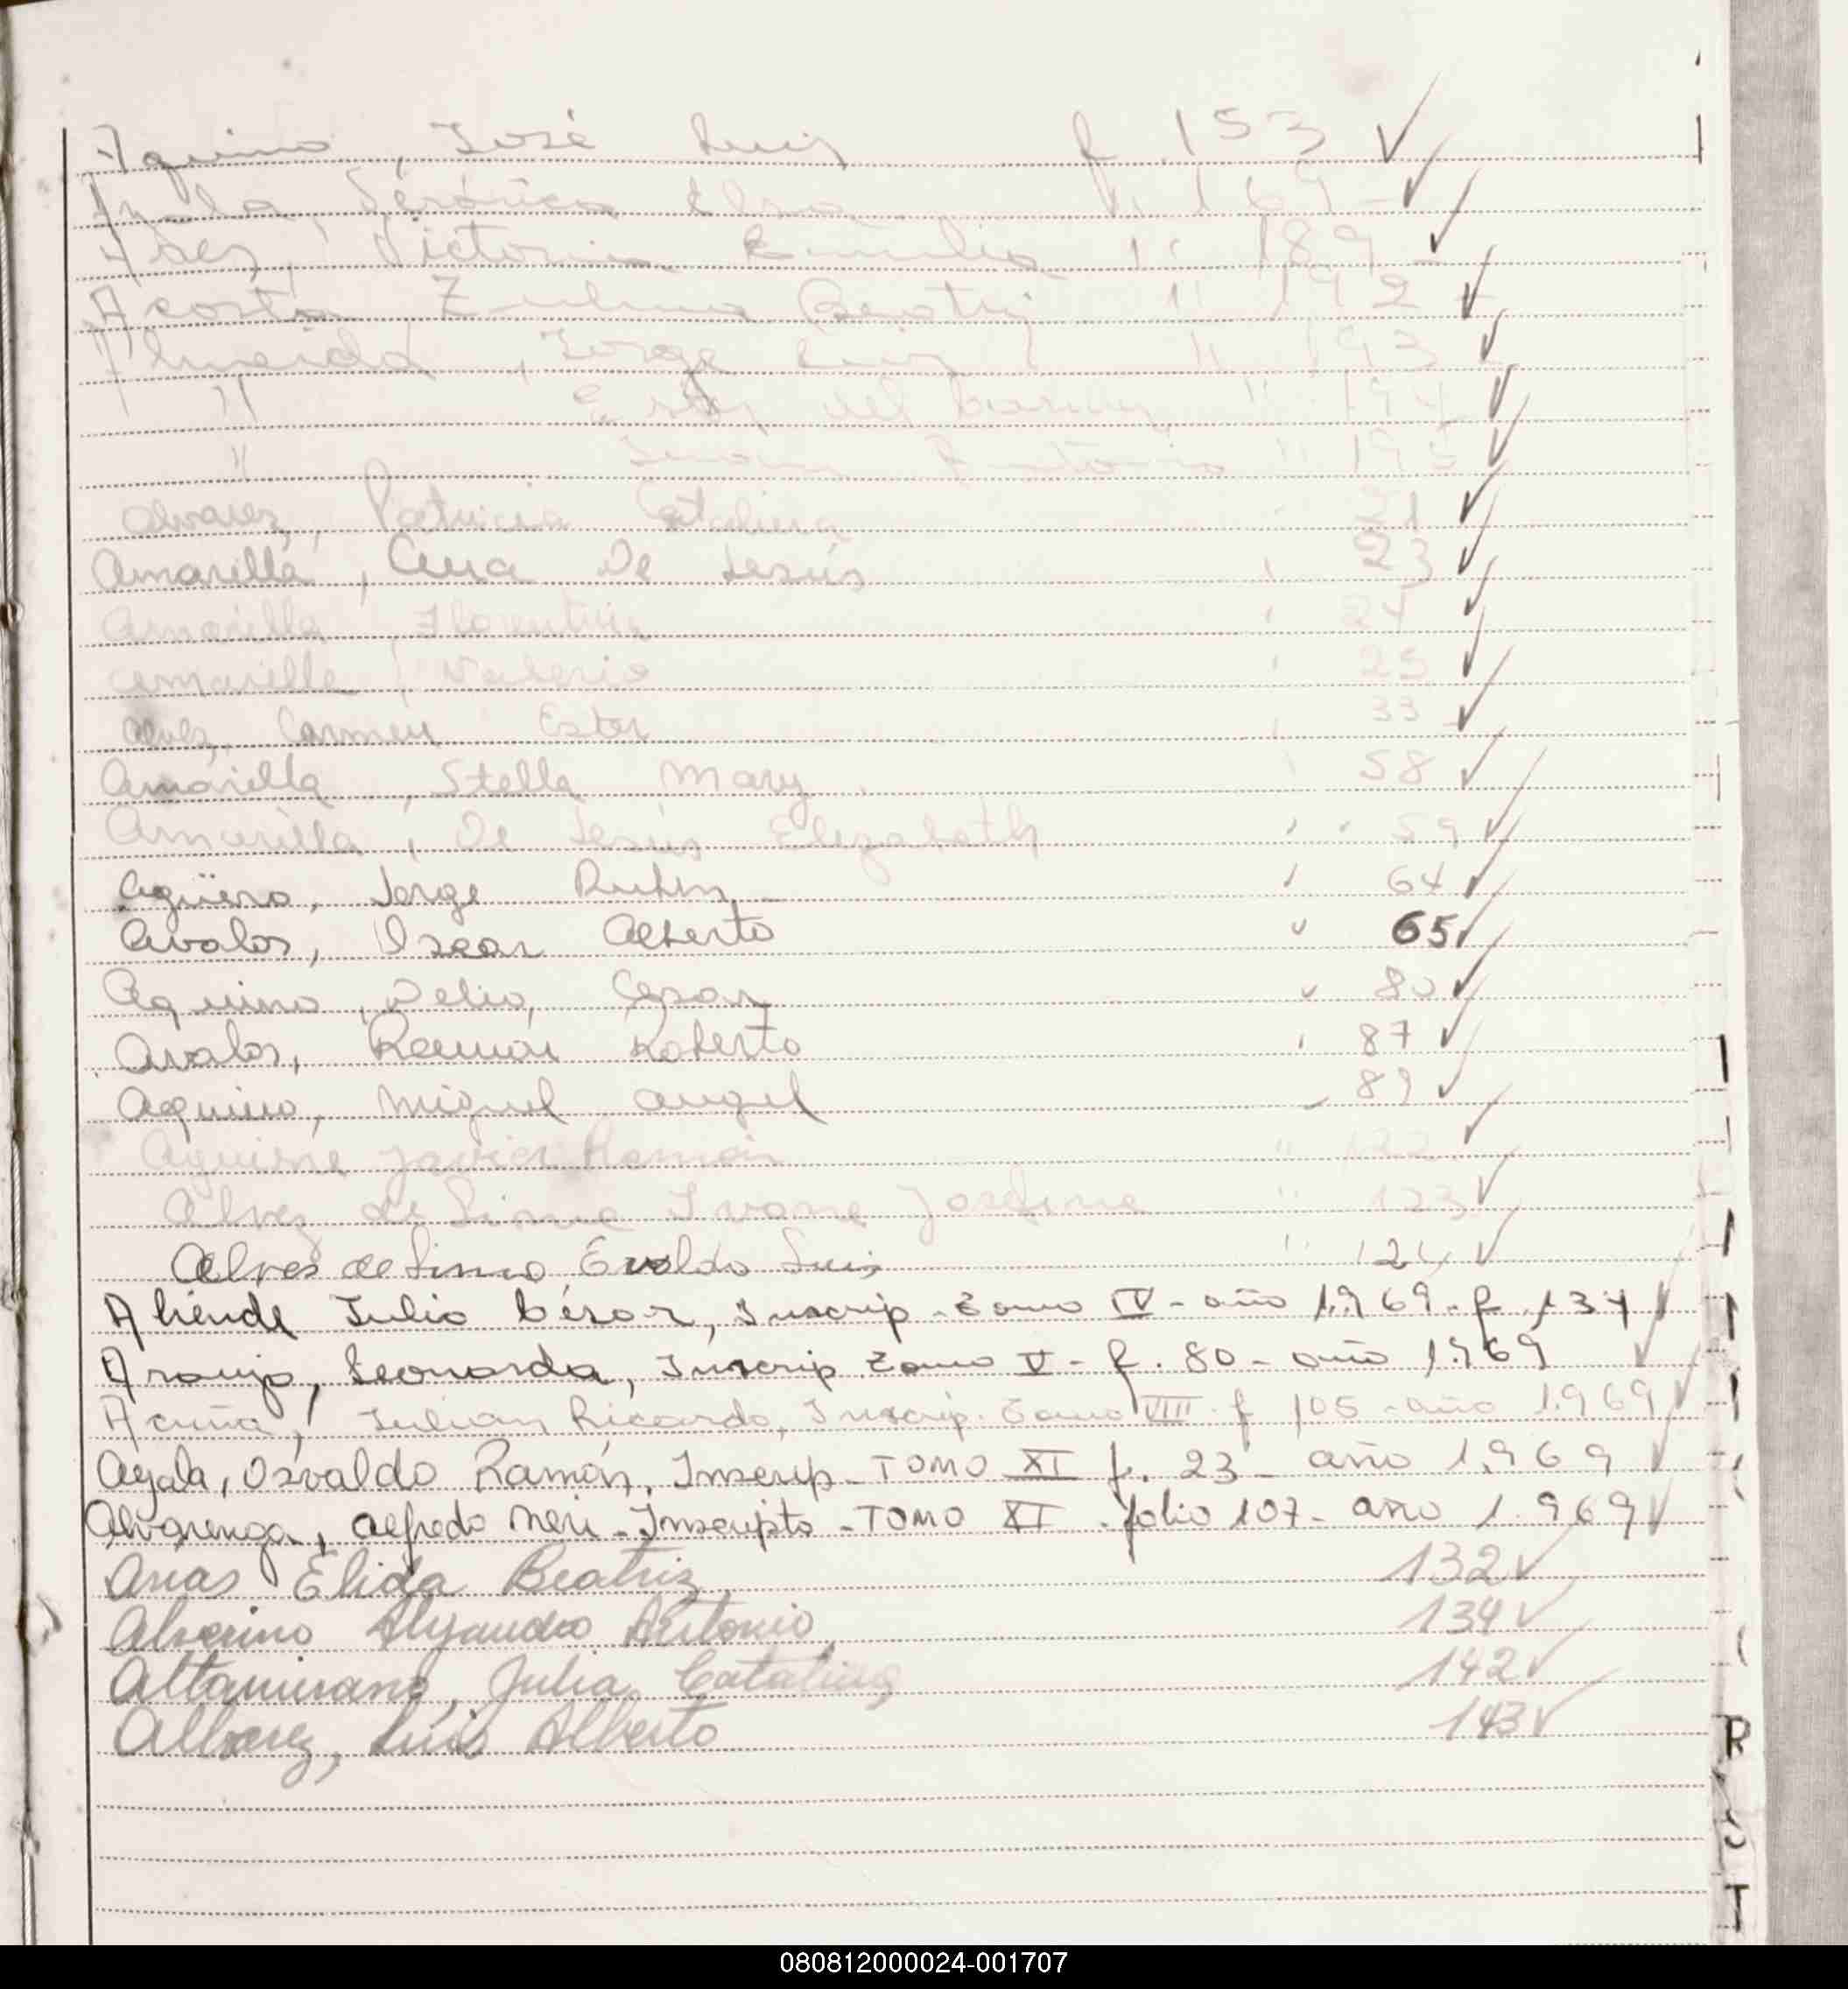 Aquino, José Luis f. 153 ✓
Ayala, Verónica Elsa " 169 - ✓
Victorina Emilia " 189 - ✓
Acosta Zulma Beatriz " 192 ✓
Almeida, Jorge Luis " 193 ✓
" Ester del Carmen " 194 ✓
" Antonio " 195 ✓
Alvarez, Patricia Catalina " 21 ✓
Amarilla, Ana De Jesús " 23 ✓
Amarilla, Florentina " 24 ✓
Amarilla, Valeria " 25 ✓
Alvez, Carmen Ester " 33 ✓
Amarilla, Stella Mary. " 58 ✓
Amarilla, De Jesús Elizabeth " 59 ✓
Agüero, Jorge Rubén " 64 ✓
Avalos, Oscar Alberto " 65 ✓
Aquino, Delio, Cesar " 80 ✓
Avalos, Ramón Roberto " 87 ✓
Aquino, Miguel Angel " 89 ✓
Aguirre Javier Ramón " 122 ✓
Alvez de Lima Ivone Josefina " 123 ✓
Alves de Lima Evaldo Luis " 124 ✓
Aliende Julio César, Inscrip - Tomo IV - año 1.969 - f. 134 ✓
Araujo, Leonarda, Inscrip. Tomo V - f. 80 - año 1.969 ✓
Acuña, Julian Ricardo, Inscrip. Tomo VIII - f 105 - año 1.969 ✓
Ayala, Osvaldo Ramón, Inscrip - TOMO XI f. 23 - año 1.969 ✓
Alvarenga, Alfredo Neri - Inscripto - TOMO XI - folio 107 - año 1.969 ✓
Arias Elida Beatriz, 132 ✓
Alverino Alejandro Antonio, 134 ✓
Altamirano, Julia Catalina 142 ✓
Alvarez, Luis Alberto 143 ✓
R
S
T
080812000024-001707